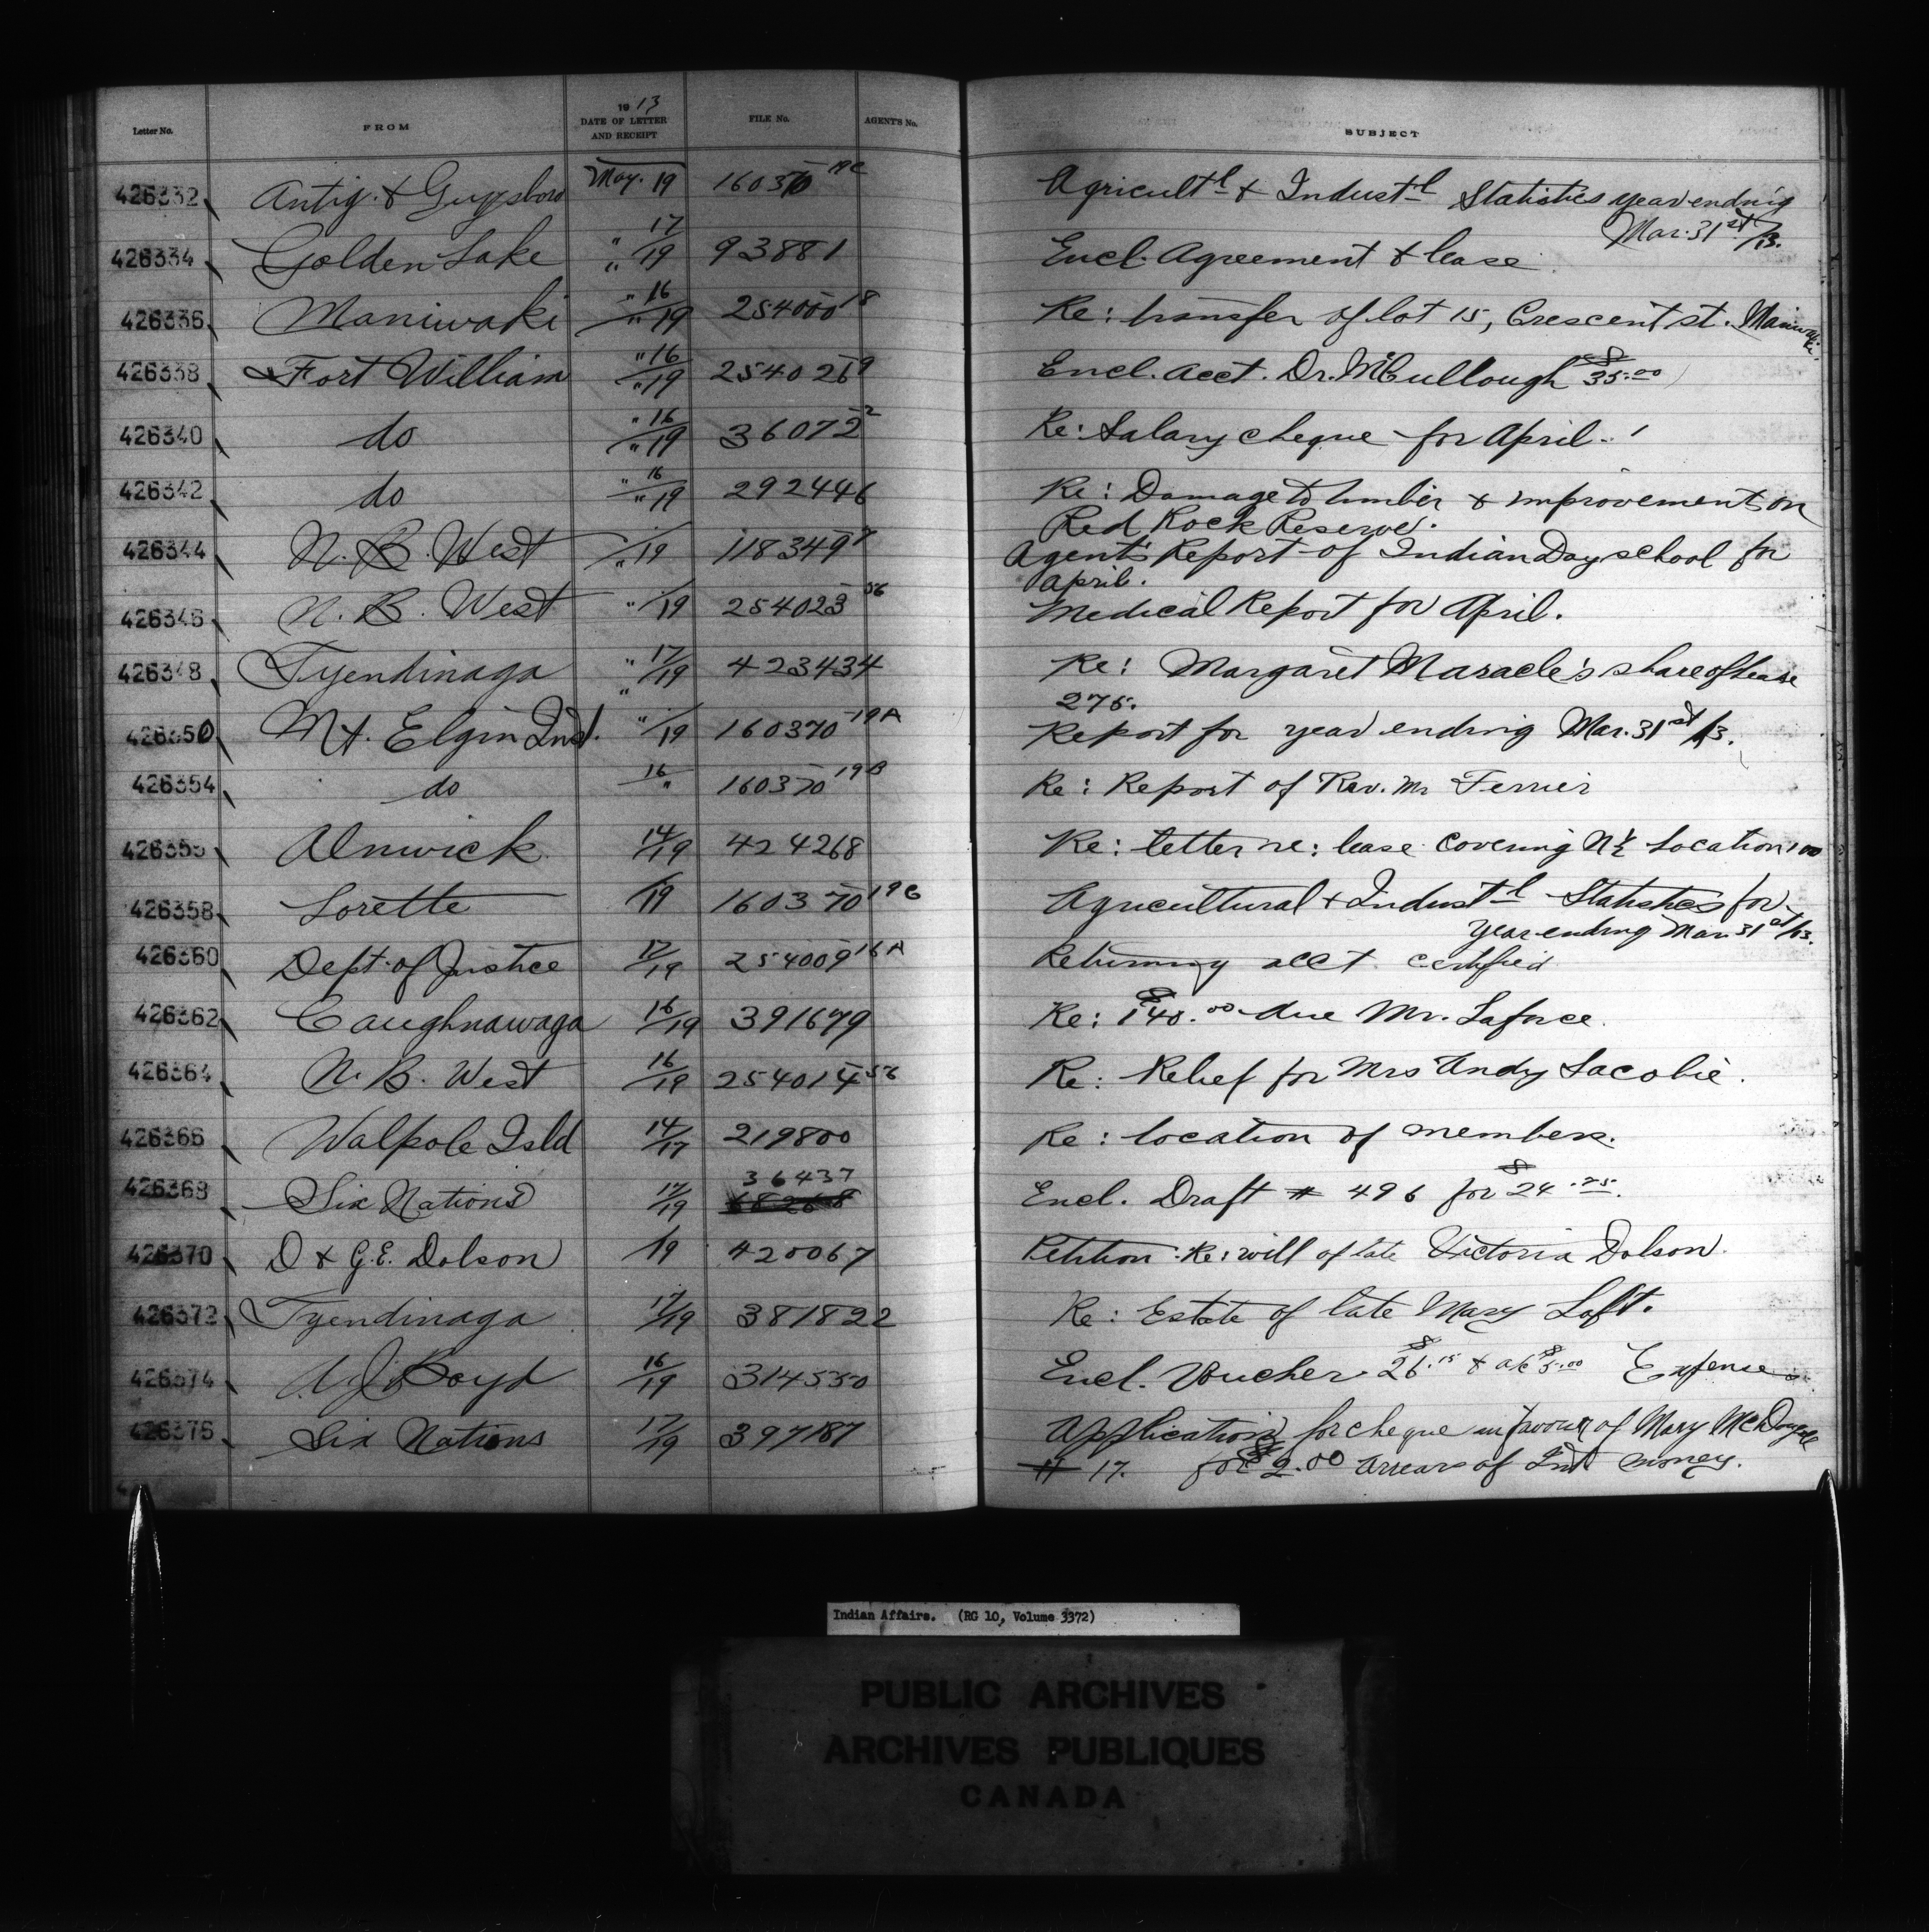 Letter No. FROM 1913 DATE OF LETTER AND RECEIPT FILE No. AGENT'S No. SUBJECT
426332 Antig. & Guysboro May. 19 160370-19C Agricult'l & Indust'l Statistics year ending
Mar. 31st/13.
426334 Golden Lake " 17/" 19 93881 Encl. Agreement & lease
426336 Maniwaki " 16/" 19 254000-18 Re: transfer of lot 15, Crescent st. Maniwaki.
426338 Fort William " 16/" 19 254026-9 Encl. acct. Dr. McCullough $35.00
426340 do " 16/" 19 36072-2 Re: Salary cheque for April.
426342 do " 16/" 19 292446 Re: Damage to timber & improvement on
Red Rock Reserve.
426344 N. B. West /" 19 118349-7 Agent's Report of Indian Day school for
April.
426346 N. B. West "/19 254023-56 Medical Report for April.
426348 Tyendinaga " 17/" 19 423434 Re: Margaret Maracle's share of lease
275.
426350 Mt. Elgin Inst. "/19 160370-19A Report for year ending Mar. 31st/13.
426354 do 16/" 160370-19B Re: Report of Rev. Mr Ferrier
Alnwick 14/19 424268 Re: letter re: lease covering N½ Location 100
426358 Lorette /19 160370-19C Agricultural & Indust'l Statistics for
year ending Mar. 31st/13.
426360 Dept. of Justice 17/19 254009-16A Returning acct certified
426362 Caughnawaga 16/19 391679 Re: $140.00 due Mr. Laforce.
426364 N. B. West 16/19 254014-56 Re: Relief for Mrs Andy Lacobie.
426366 Walpole Isld 14/17 219800 Re: location of members.
36437
426368 Six Nations 17/19 Encl. Draft # 496 for $24.25.
426370 D & G.E. Dolson /19 420067 Petition: Re: will of late Victoria Dolson.
426372 Tyendinaga 17/19 381822 Re: Estate of late Mary Loft.
426374 A J Boyd 16/19 314530 Encl. Voucher $26.15 & a/c $5.00 Expenses
426376 Six Nations 17/19 397187 Application for cheque in favour of Mary McDougall
# 17. for $2.00 arrears of Int. money.
Indian Affairs. (RG 10, Volume 3372)
PUBLIC ARCHIVES
ARCHIVES PUBLIQUES
CANADA